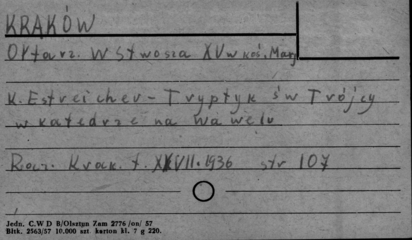 KRAKÓW
Ołtarz. W Stwosza XV w koś. Marj
K. Estreicher - Tryptyk św Trójcy
w katedrze na Wawelu
Rocz. Krak. t. XXVII. 1936 str 107
Jedn. C.W D 8/Olsztyn Zam 2776 /on/ 57
Bltk. 2563/57 10.000 szt. karton kl. 7 g 220.